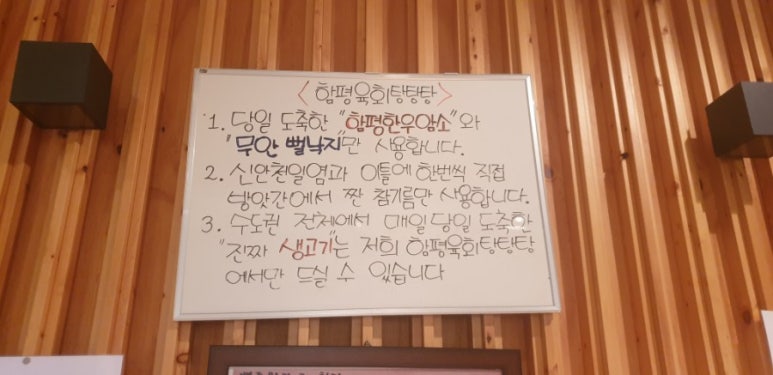 <함평육회탕탕탕>
1. 당일 도축한 "함평한우암소"와
"무안 뻘낙지"만 사용합니다.
2. 신안천일염과 이틀에 한번씩 직접
방앗간에서 짠 참기름만 사용합니다.
3. 수도권 전체에서 매일 당일 도축한
"진짜 생고기"는 저희 함평육회탕탕탕
에서만 드실 수 있습니다